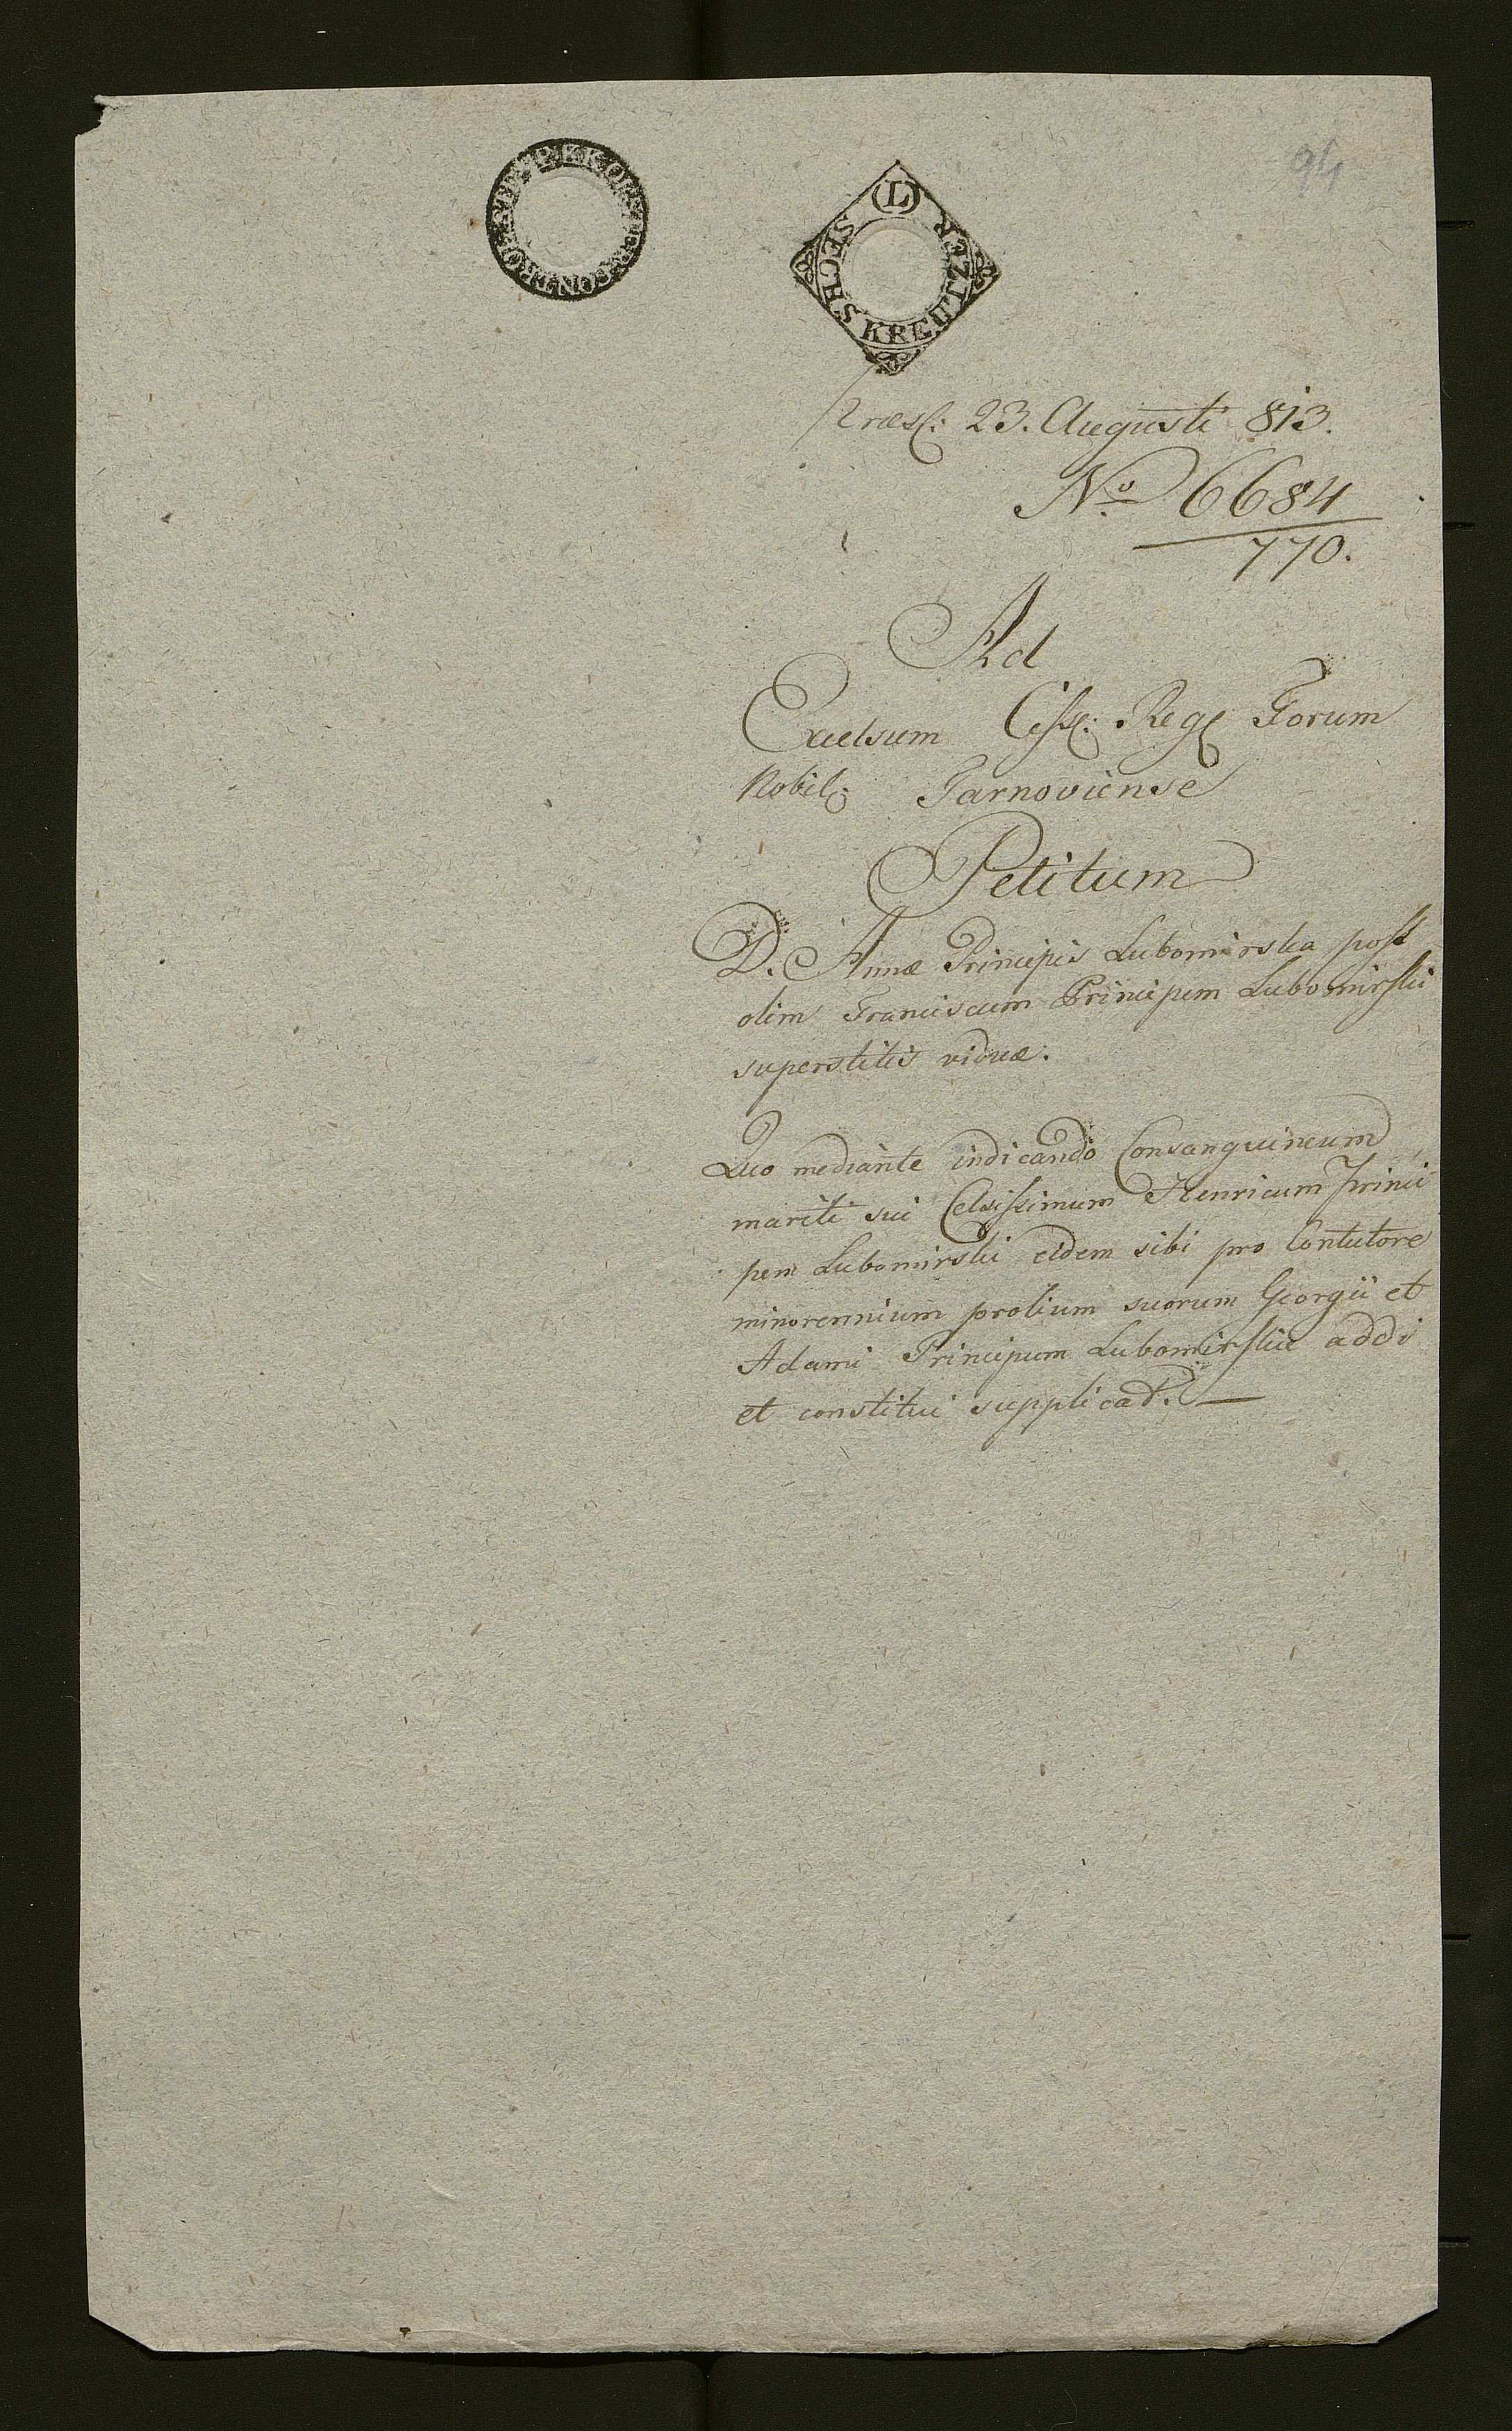 94
(L)
SECHS KREUTZER
Præs: 23. Augusti 813.
No 6684
770.
Ad
Excelsum Cæs: Reg: Forum
Nobil: Tarnoviense
Petitum
D. Annæ Principis Lubomirska post
olim Franciscum Principem Lubomirski
superstitis viduæ.
Quo mediante indicando Consanguineum
mariti sui Celsissimum Henricum Princi
pem Lubomirski eidem sibi pro Contutore
minorennium prolium suorum Georgii et
Adami Principum Lubomirskie addi
et constitui supplicat. —